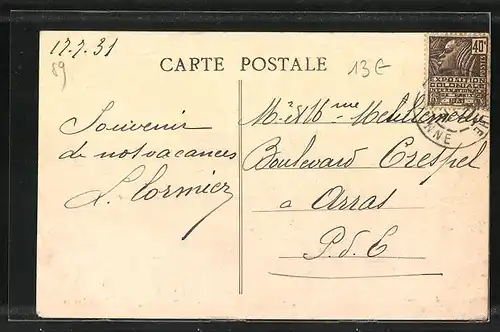 17.7.31
89
CARTE POSTALE
13€
40c
POSTES
EXPOSITION
COLONIALE
INTERNATIONALE
PARIS 1931
Souvenir
de nos vacances
L. Cormier
Mr & Mme
Boulevard Crespel
a Arras
P. d. C